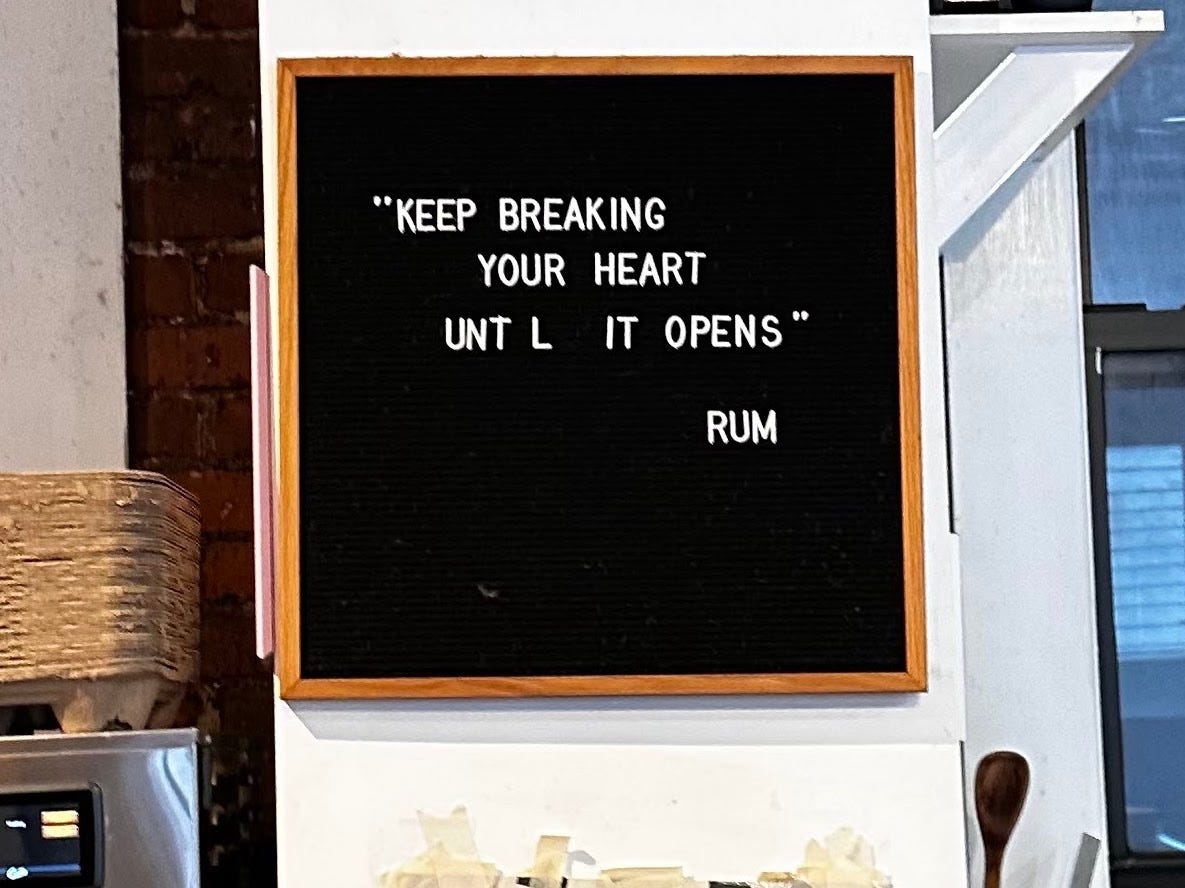 "KEEP BREAKING
YOUR HEART
UNT L IT OPENS"
RUM